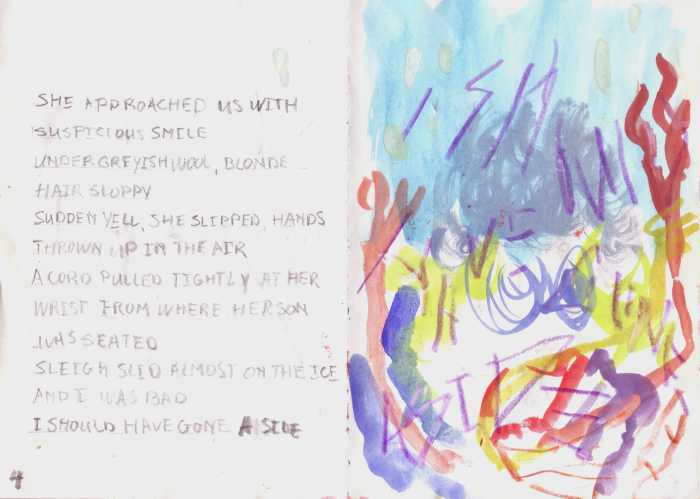 SHE APPROACHED US WITH
SUSPICIOUS SMILE
UNDER GREYISH WOOL, BLONDE
HAIR SLOPPY
SUDDEN YELL, SHE SLIPPED, HANDS
THROWN UP IN THE AIR
A CORD PULLED TIGHTLY AT HER
WRIST FROM WHERE HER SON
WAS SEATED
SLEIGH SLID ALMOST ON THE ICE
AND I WAS BAD
I SHOULD HAVE GONE ASIDE
4
I SH
ASIDE